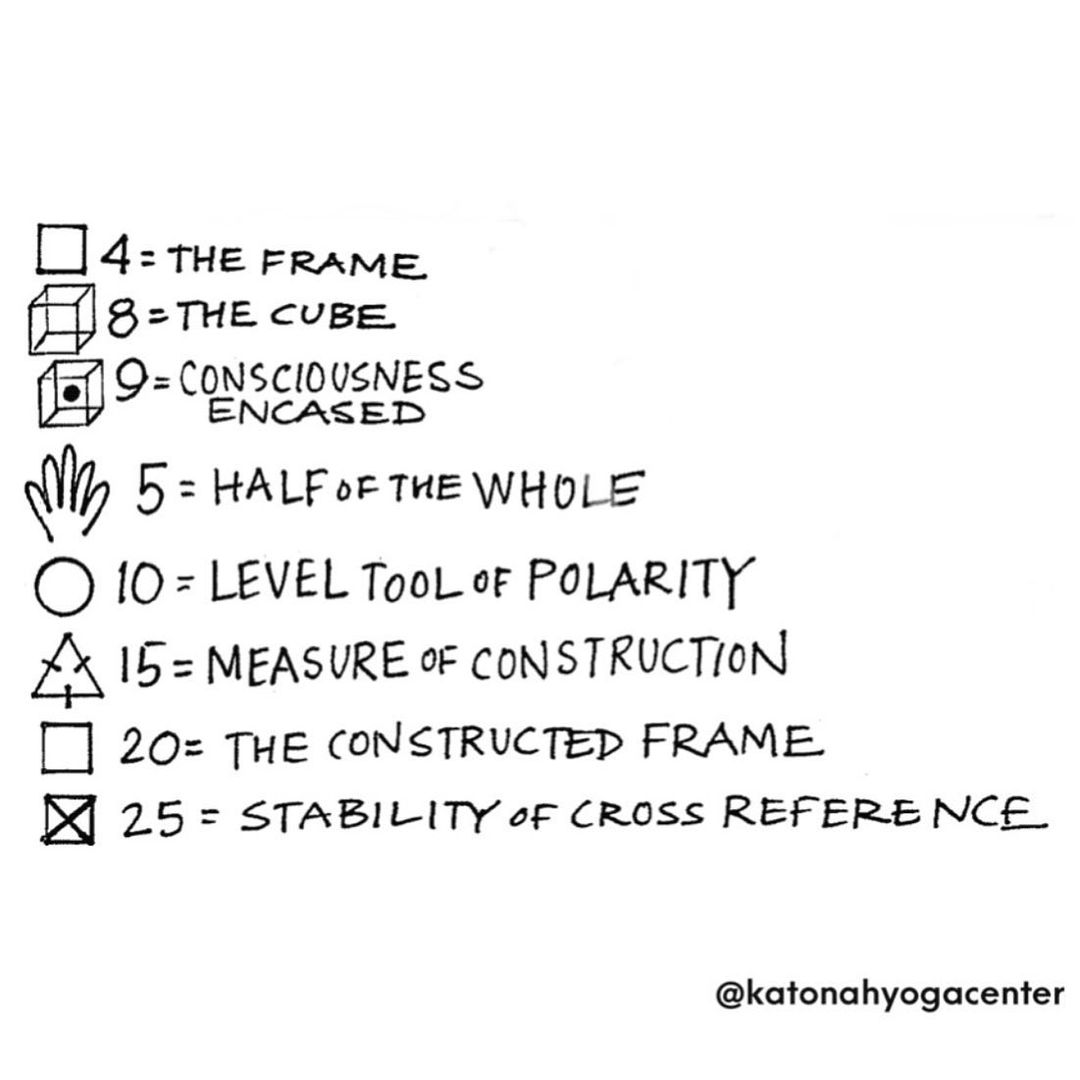 4 = THE FRAME
8 = THE CUBE
9 = CONSCIOUSNESS
ENCASED
5 = HALF OF THE WHOLE
10 = LEVEL TOOL OF POLARITY
15 = MEASURE OF CONSTRUCTION
20 = THE CONSTRUCTED FRAME
25 = STABILITY OF CROSS REFERENCE
@katonahyogacenter